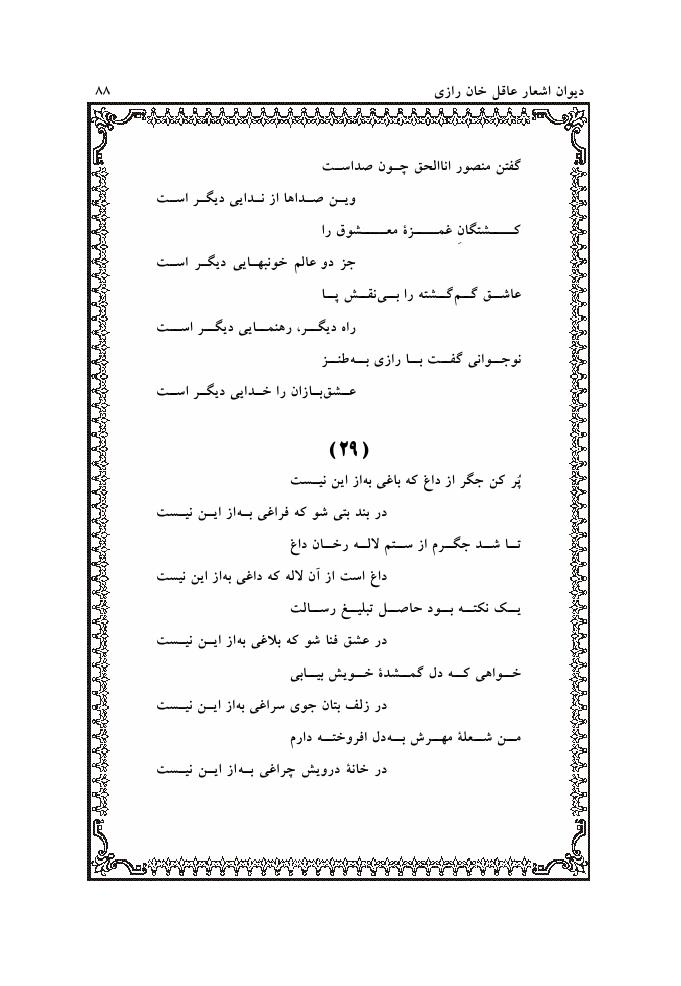 دیوان اشعار عاقل خان رازی ۸۸
گفتن منصور اناالحق چون صداست
وین صداها از ندایی دیگر است
کشتگانِ غمزهٔ معشوق را
جز دو عالم خونبهایی دیگر است
عاشق گم‌گشته را بی‌نقش پا
راه دیگر، رهنمایی دیگر است
نوجوانی گفت با رازی به‌طنز
عشق‌بازان را خدایی دیگر است
(۲۹)
پُر کن جگر از داغ که باغی به‌از این نیست
در بند بتی شو که فراغی به‌از این نیست
تا شد جگرم از ستم لاله رخان داغ
داغ است از آن لاله که داغی به‌از این نیست
یک نکته بود حاصل تبلیغ رسالت
در عشق فنا شو که بلاغی به‌از این نیست
خواهی که دل گمشدهٔ خویش بیابی
در زلف بتان جوی سراغی به‌از این نیست
من شعلهٔ مهرش به‌دل افروخته دارم
در خانهٔ درویش چراغی به‌از این نیست